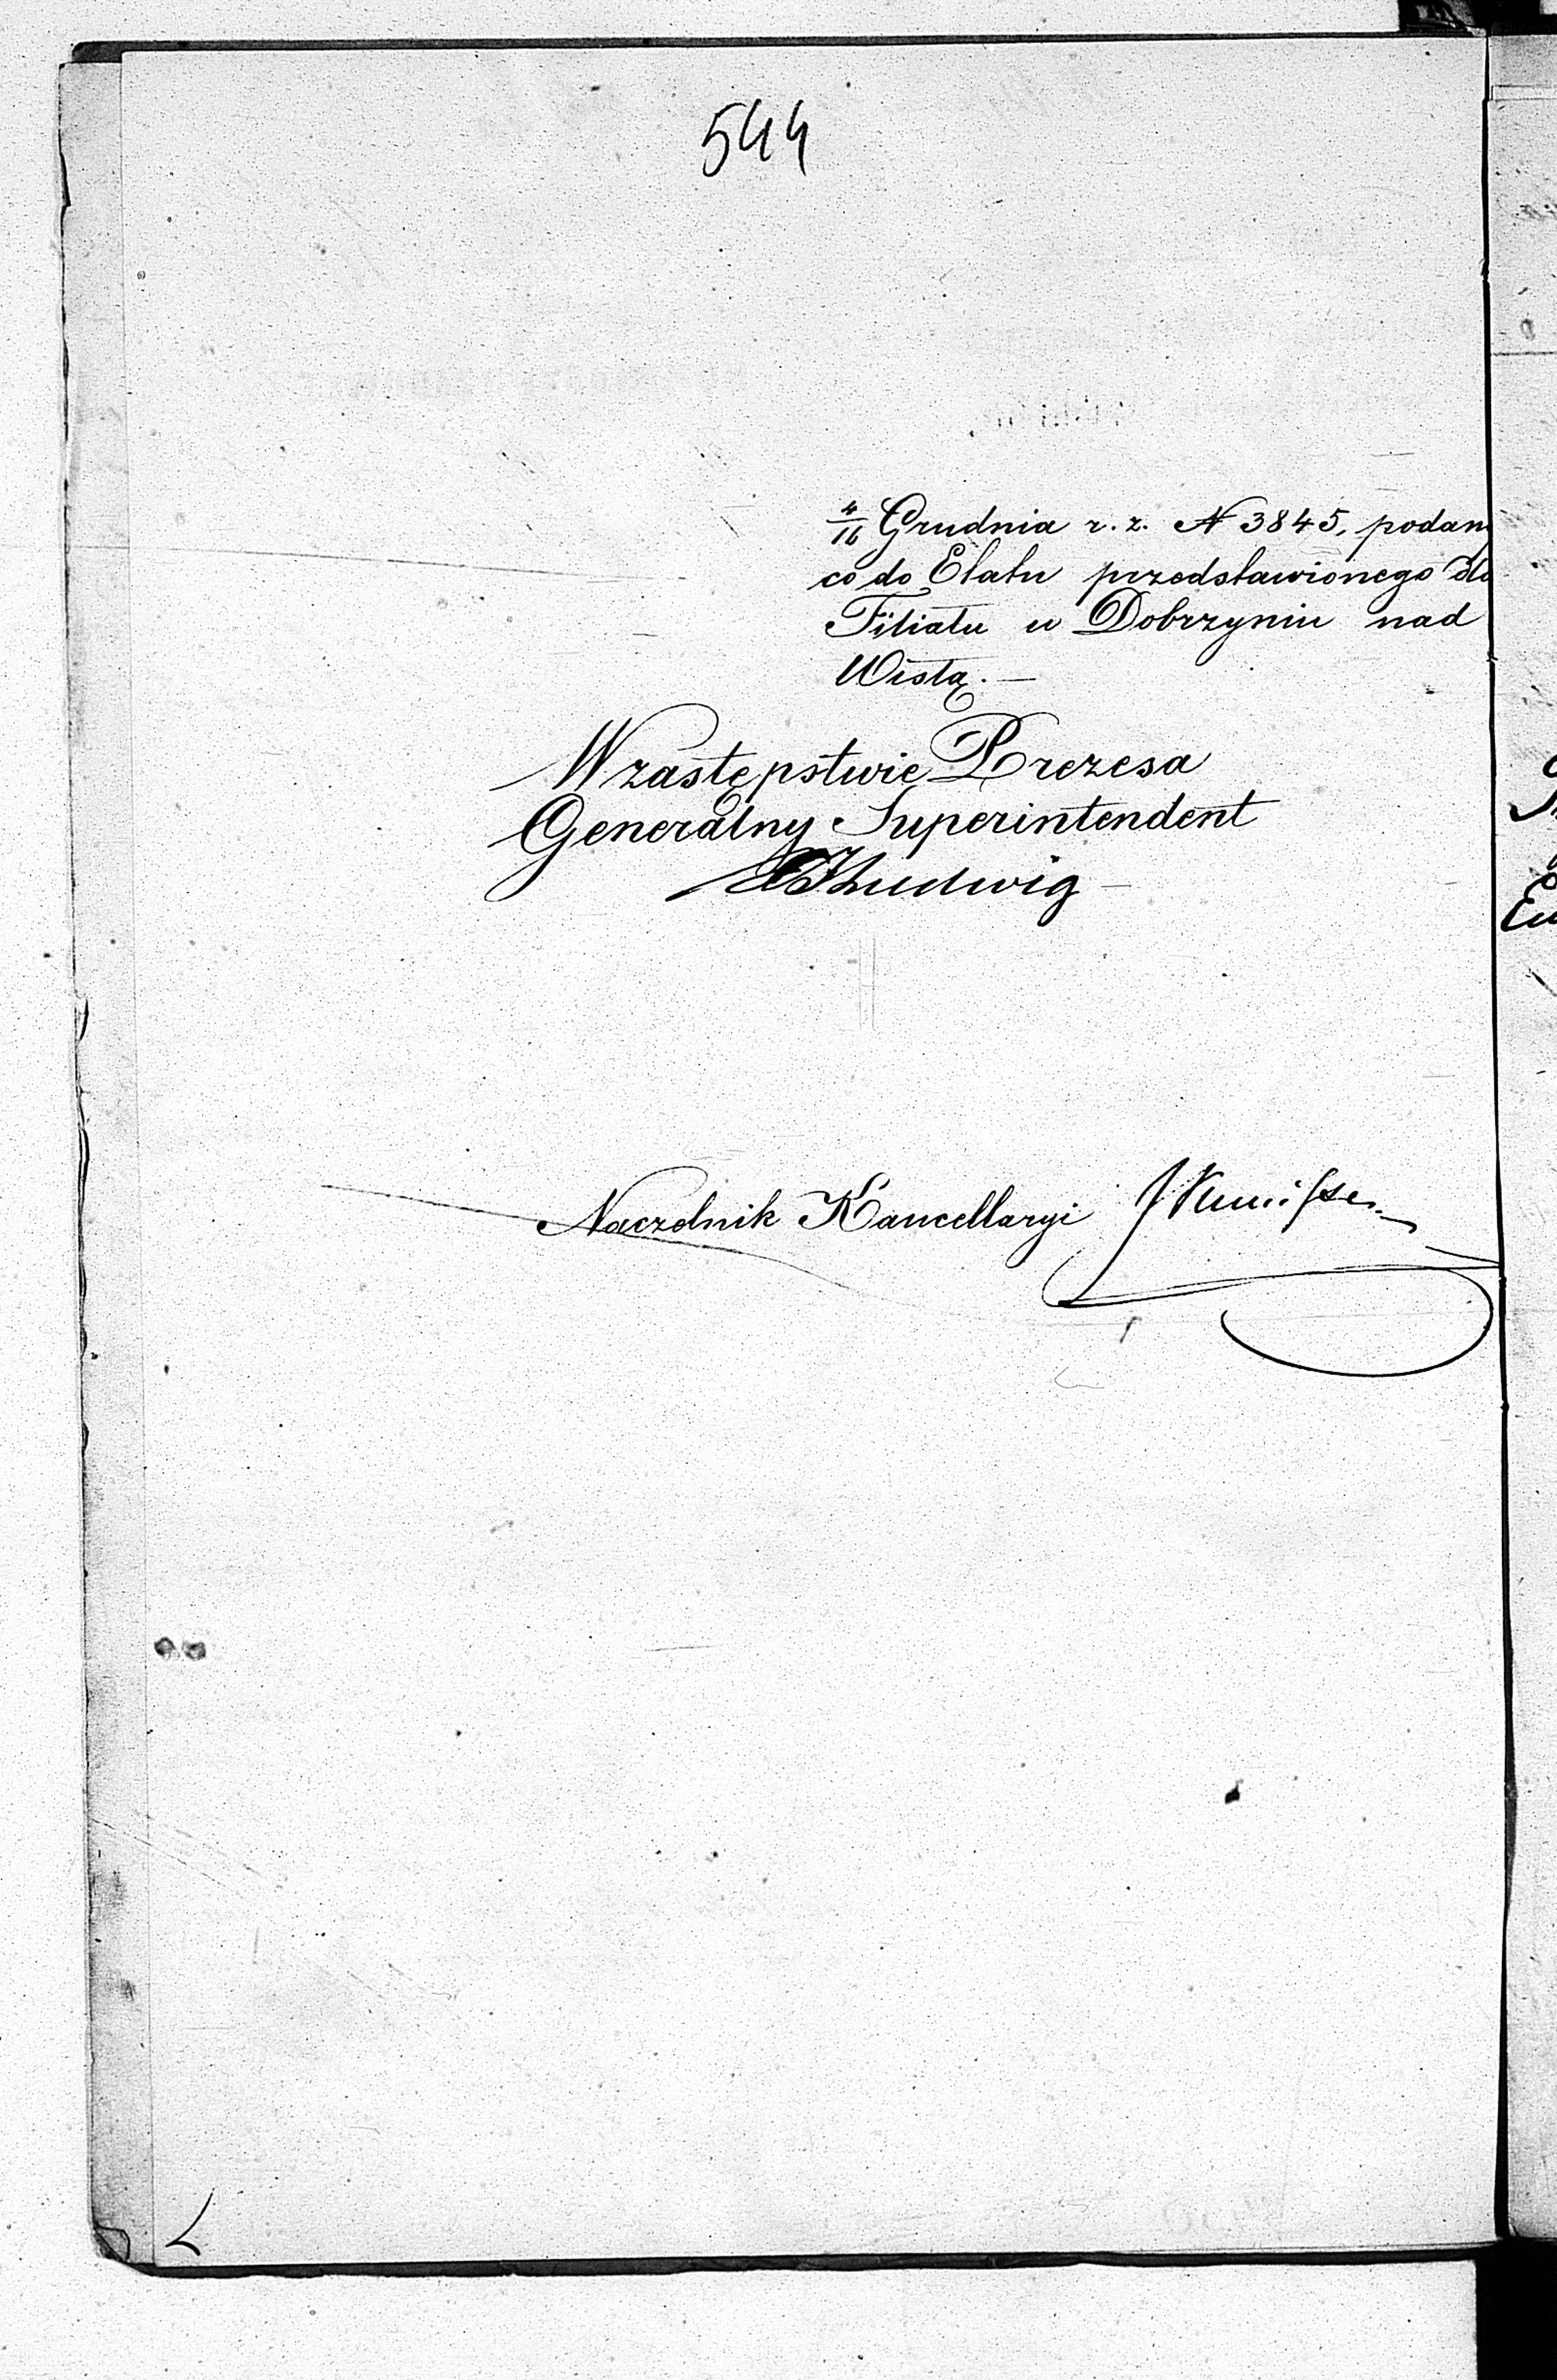 544
4/16 Grudnia r. z. N 3845, podan
co do Etatu przedstawionego dla
Filiału w Dobrzyniu nad
Wisłą. —
W zastępstwie Prezesa
Generalny Superintendent
Ludwig
Naczelnik Kancellaryi